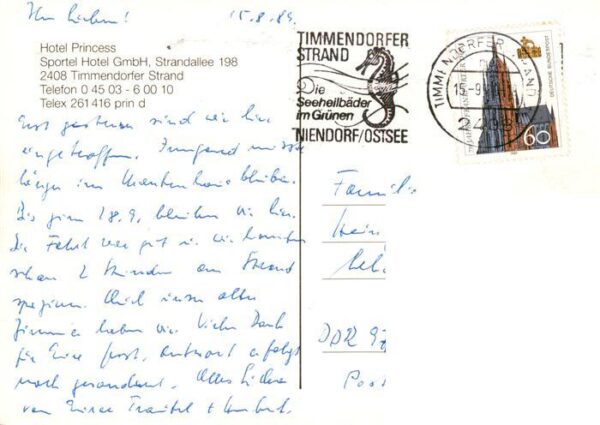 Ihr Lieben! 15.9.89
Hotel Princess
Sportel Hotel GmbH, Strandallee 198
2408 Timmendorfer Strand
Telefon 0 45 03 - 6 00 10
Telex 261 416 prin d
TIMMENDORFER
STRAND
Die
Seeheilbäder
im Grünen
NIENDORF/OSTSEE
TIMMENDORFER STRAND
15.-9.
DEUTSCHE BUNDESPOST
60
Erst gestern sind wir hier
eingetroffen. mußte
länger im Krankenhaus bleiben.
Bis zum 28.9. bleiben wir hier.
Die Fahrt war gut u. wir konnten
schon 2 Stunden am Strand
Für
haben wir Vielen Dank
für Eure Post, Antwort erfolgt
noch gesondert. Alles Liebe
von Eurer Traudel +
Famili
Hein
DDR
Post